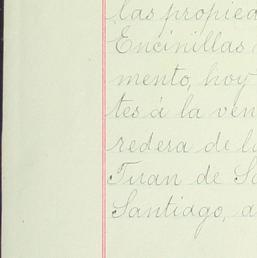 las propied
Encinillas
mento, hoy
tes á la ven
redera de l
Turan de S
Santiago, a